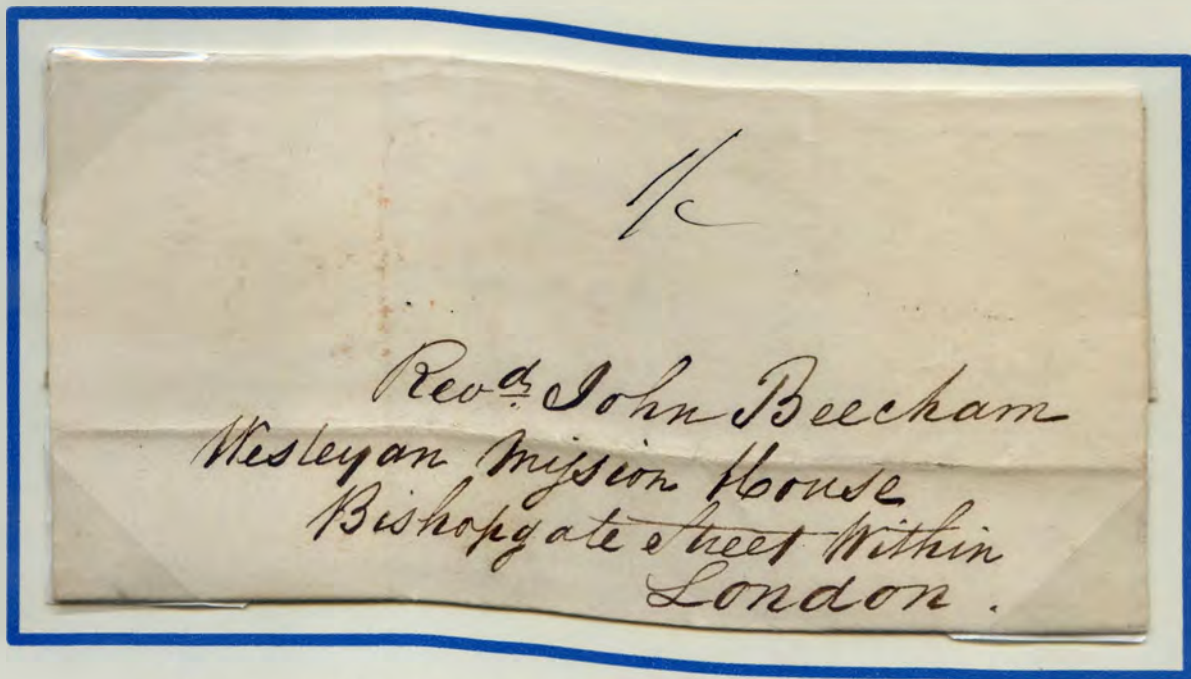 1/-
Revd. John Beecham
Wesleyan Mission House
Bishopgate Street Within
London.